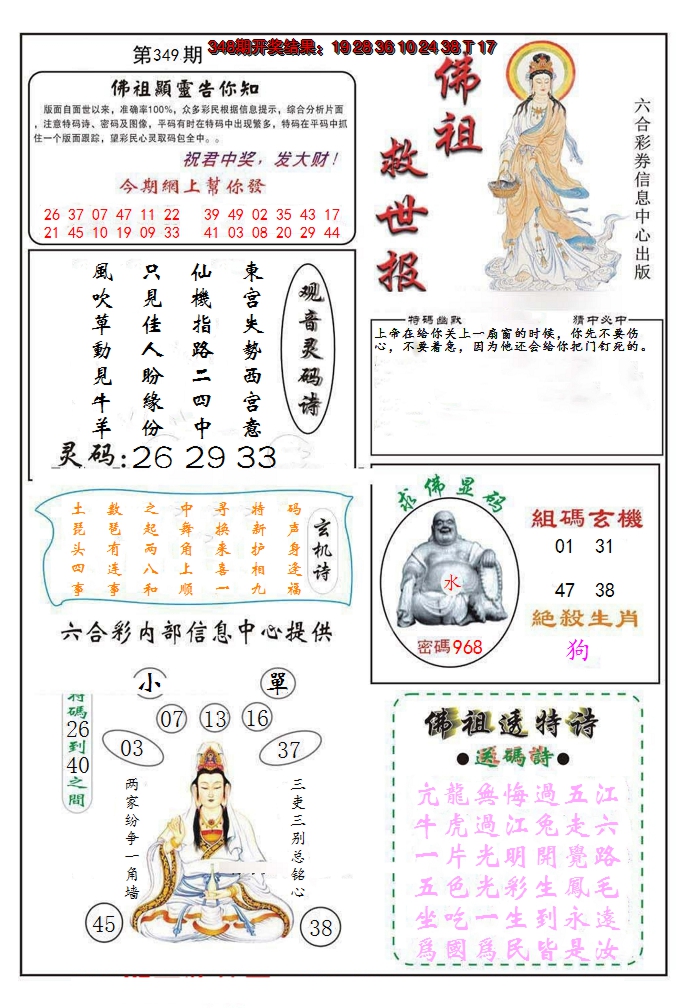 第349期
348期开奖结果：19 28 36 10 24 38 T 17
佛祖顯靈告你知
版面自面世以来，准确率100%，众多彩民根据信息提示，综合分析片面
，注意特码诗、密码及图像，平码有时在特码中出现繁多，特码在平码中抓
住一个版面跟踪，望彩民心灵取码包全中。。
祝君中奖，发大财！
今期網上幫你發
26 37 07 47 11 22 39 49 02 35 43 17
21 45 10 19 09 33 41 03 08 20 29 44
佛祖救世报
六合彩券信息中心出版
观音灵码诗
東宫失勢西宫意
仙機指路二四中
只見佳人盼緣份
風吹草動見牛羊
灵码:26 29 33
特碼幽默
猜中必中
上帝在给你关上一扇窗的时候，你先不要伤
心，不要着急，因为他还会给你把门钉死的。
土数之中寻特码
琵琶起舞换新声
头有两角来护身
四连八上喜相逢
事事和顺一九福
玄机诗
六合彩内部信息中心提供
求佛显码
水
密碼968
組碼玄機
01 31
47 38
絶殺生肖
狗
小
單
特碼26到40之間
07 13 16
03
37
两家纷争一角墙
三吏三别总铭心
45
38
佛祖透特诗
●送碼詩●
亢龍無悔過五江
牛虎過江兔走六
一片光明開覺路
五色光彩生鳳毛
坐吃一生到永遠
爲國爲民皆是汝